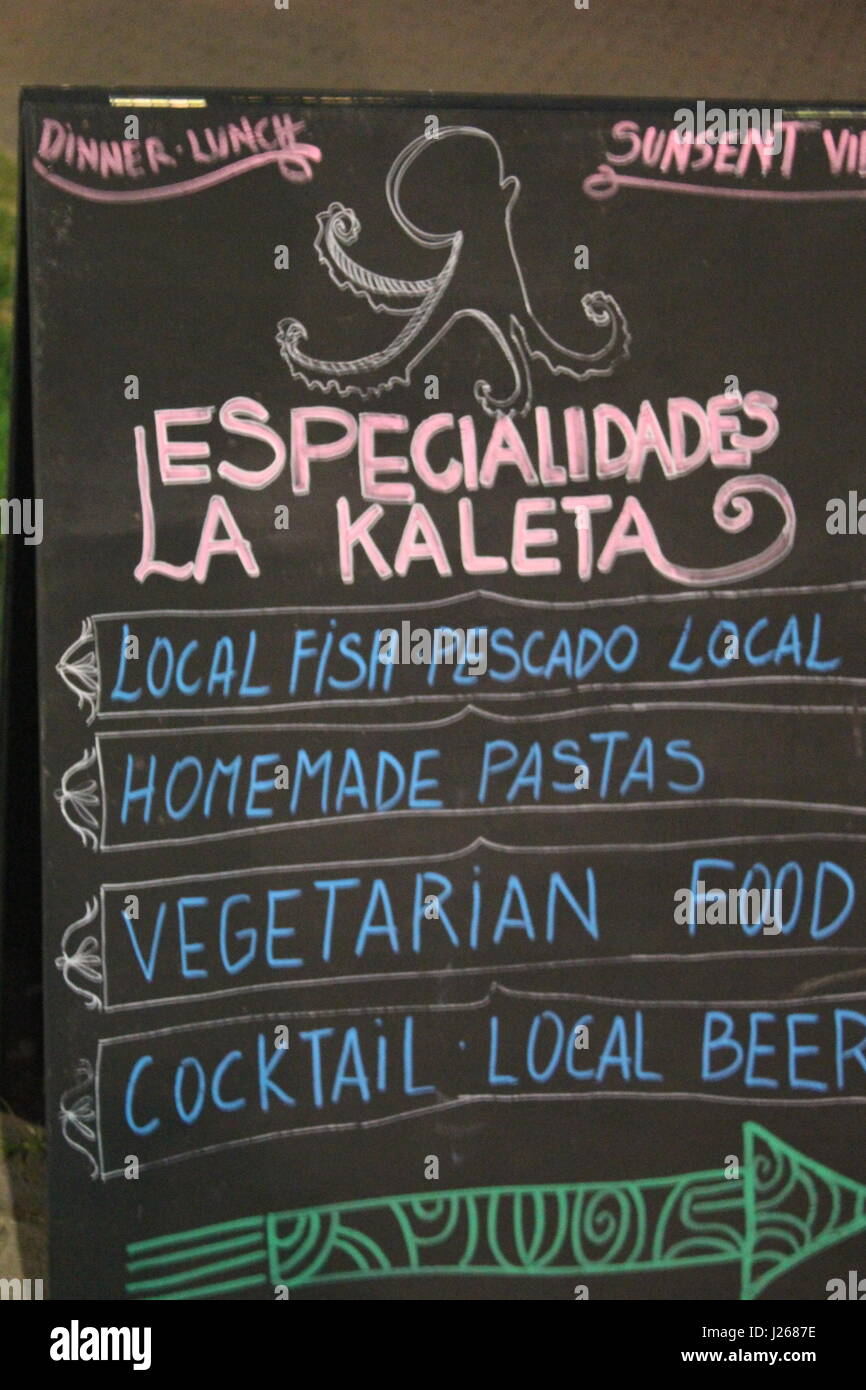 DINNER · LUNCH
SUNSENT VIE
ESPECIALIDADES
LA KALETA
LOCAL FiSH · PESCADO LOCAL
HOMEMADE PASTAS
VEGETARiAN FOOD
COCKTAiL · LOCAL BEER
alamy stock photo
J2687E
www.alamy.com